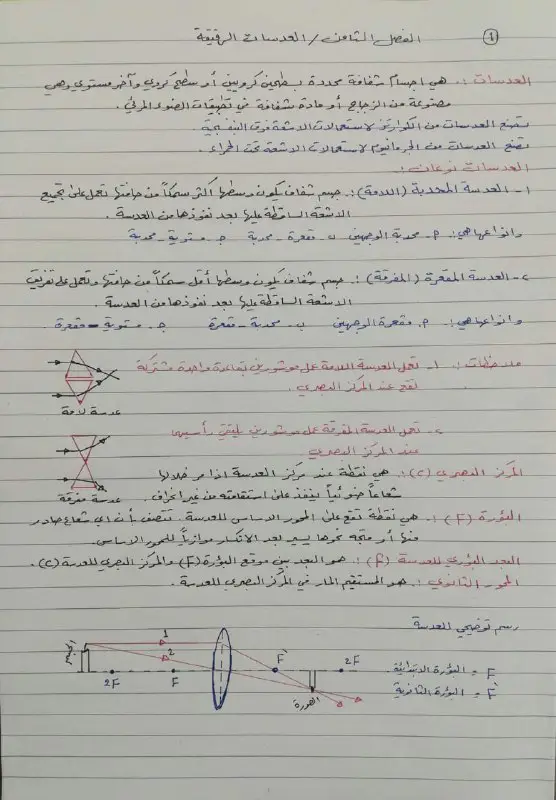 ① الفصل الثامن / العدسات الرقيقة
العدسات :. هي اجسام شفافة محددة بسطحين كرويين أو سطح كروي وآخر مستوي وهي
مصنوعة من الزجاج أو مادة شفافة في تطبيقات الضوء المرئي.
تصنع العدسات من الكوارتز لاستعمالات الاشعة فوق البنفسجية
تصنع العدسات من الجرمانيوم لاستعمالات الاشعة تحت الحمراء.
العدسات نوعان :.
١- العدسة المحدبة (اللامة) :. جسم شفاف يكون وسطها أكثر سمكاً من حافتها تعمل على تجميع
الاشعة الساقطة عليها بعد نفوذها من العدسة.
وانواعها هي :. م- محدبة الوجهين ب- مقعرة - محدبة جـ - مستوية - محدبة
٢- العدسة المقعرة (المفرقة) :. جسم شفاف يكون وسطها أقل سمكاً من حافتها وتعمل على تفريق
الاشعة الساقطة عليها بعد نفوذها من العدسة.
وانواعها هي :. م. مقعرة الوجهين ب- محدبة - مقعرة جـ. مستوية - مقعرة
ملاحظات : ١- تعمل العدسة اللامة عمل موشورين بقاعدة واحدة مشتركة
تقع عند المركز البصري.
عدسة لامة
٢- تعمل العدسة المفرقة عمل موشورين يلتقي رأسيهما
عند المركز البصري
المركز البصري (c) :. هي نقطة عند مركز العدسة اذا مر خلالها
شعاعاً ضوئياً ينفذ على استقامته من غير انحراف.
عدسة مفرقة
البؤرة (F) :. هي نقطة تقع على المحور الاساس للعدسة. تتصف بأن اي شعاع صادر
منها أو متجه نحوها يسير بعد الانكسار موازياً للمحور الاساس.
البعد البؤري للعدسة (f) :. هو البعد بين موقع البؤرة (F) والمركز البصري للعدسة (c).
المحور الثانوي :. هو المستقيم المار في المركز البصري للعدسة.
رسم توضيحي للعدسة
الجسم
1
2
2F F F` 2F
الصورة
F = البؤرة الابتدائية
F` = البؤرة الثانوية